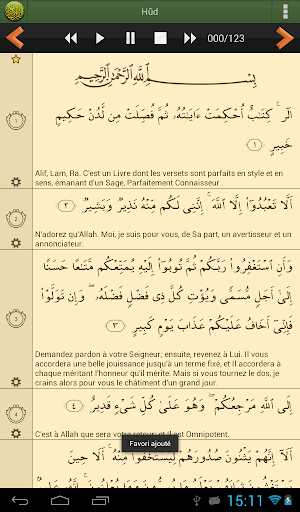 Hūd
000/123
بِسْمِ ٱللَّهِ ٱلرَّحْمَٰنِ ٱلرَّحِيمِ
الٓر ۚ كِتَٰبٌ أُحْكِمَتْ ءَايَٰتُهُۥ ثُمَّ فُصِّلَتْ مِن لَّدُنْ حَكِيمٍ
خَبِيرٍ
Alif, Lam, Ra. C'est un Livre dont les versets sont parfaits en style et en
sens, émanant d'un Sage, Parfaitement Connaisseur .
أَلَّا تَعْبُدُوٓا۟ إِلَّا ٱللَّهَ ۚ إِنَّنِى لَكُم مِّنْهُ نَذِيرٌ وَبَشِيرٌ ٢
N'adorez qu'Allah. Moi, je suis pour vous, de Sa part, un avertisseur et un
annonciateur.
وَأَنِ ٱسْتَغْفِرُوا۟ رَبَّكُمْ ثُمَّ تُوبُوٓا۟ إِلَيْهِ يُمَتِّعْكُم مَّتَٰعًا حَسَنًا
إِلَىٰٓ أَجَلٍ مُّسَمًّى وَيُؤْتِ كُلَّ ذِى فَضْلٍ فَضْلَهُۥ ۖ وَإِن تَوَلَّوْا۟
فَإِنِّىٓ أَخَافُ عَلَيْكُمْ عَذَابَ يَوْمٍ كَبِيرٍ ٣
Demandez pardon à votre Seigneur; ensuite, revenez à Lui. Il vous
accordera une belle jouissance jusqu'à un terme fixé, et Il accordera à
chaque méritant l'honneur qu'il mérite. Mais si vous tournez le dos, je
crains alors pour vous le châtiment d'un grand jour.
إِلَى ٱللَّهِ مَرْجِعُكُمْ ۖ وَهُوَ عَلَىٰ كُلِّ شَىْءٍ قَدِيرٌ ٤
C'est à Allah que sera votre retour et Il est Omnipotent.
Favori ajouté
أَلَآ إِنَّهُمْ يَثْنُونَ صُدُورَهُمْ لِيَسْتَخْفُوا۟ مِنْهُ ۚ أَلَا حِينَ
15:11